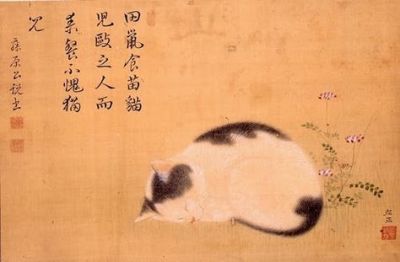 田鼡食苗貓
児毆之人而
素餐不愧猫
兒
藤原公説書